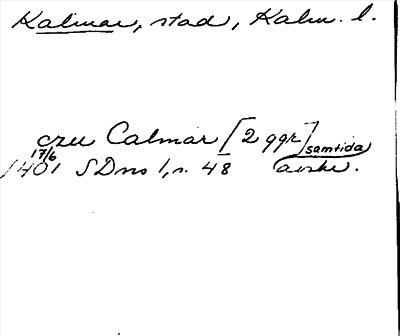 Kalmar, stad, Kalm. l.
czu Calmar [2 ggr]
17/6 samtida
1401 SDns 1, s. 48 avskr.